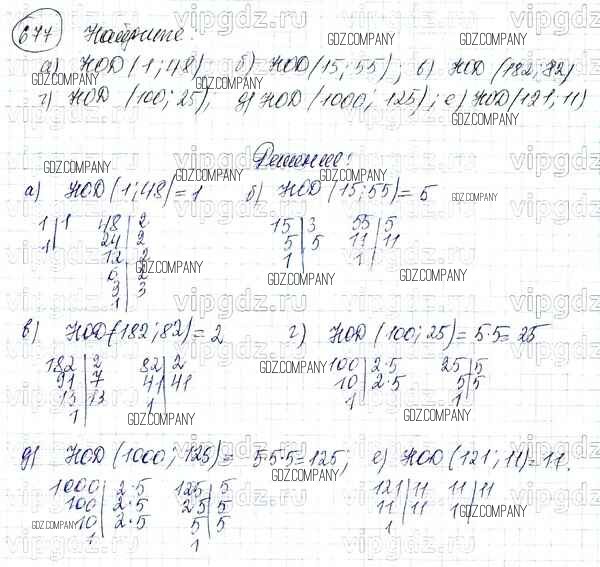 677 Найдите:
а) НОД (1; 48) б) НОД (15; 55); в) НОД (182; 82)
г) НОД (100; 25); д) НОД (1000; 125); е) НОД (121; 11)
Решение:
а) НОД (1; 48) = 1 б) НОД (15; 55) = 5
1 | 1 48 | 2 15 | 3 55 | 5
1 | 24 | 2 5 | 5 11 | 11
12 | 2 1 | 1 |
6 | 2
3 | 3
1
в) НОД (182; 82) = 2 г) НОД (100; 25) = 5·5 = 25
182 | 2 82 | 2 100 | 2·5 25 | 5
91 | 7 41 | 41 10 | 2·5 5 | 5
13 | 13 1 | 1 | 1
1 |
д) НОД (1000; 125) = 5·5·5 = 125; е) НОД (121; 11) = 11.
1000 | 2·5 125 | 5 121 | 11 11 | 11
100 | 2·5 25 | 5 11 | 11 1 |
10 | 2·5 5 | 5 1
1 | 1
vipgdz.ru
GDZ.COMPANY